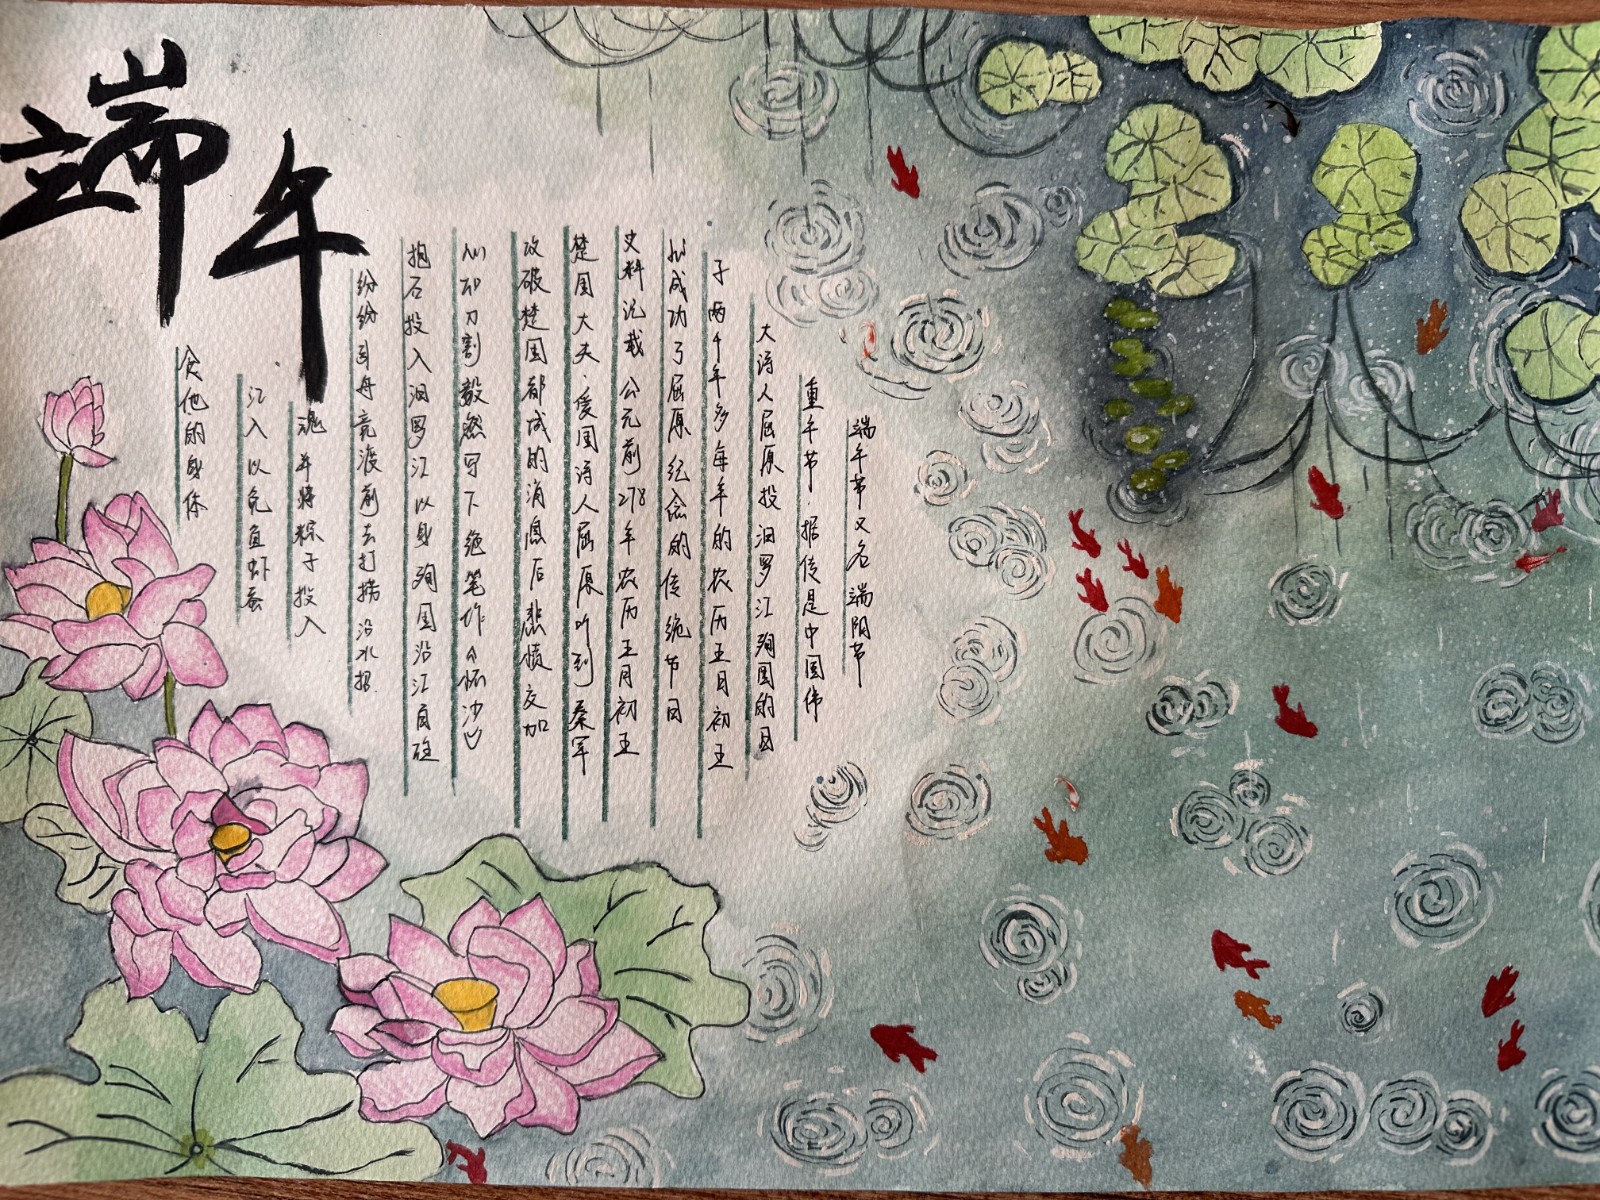 端午
端午节又名端阳节
重午节·据传是中国伟
大诗人屈原投汨罗江殉国的日
子两千年多每年的农历五月初五
就成功了屈原纪念的传统节日
史料记载 公元前278年农历五月初五
楚国大夫、爱国诗人屈原听到秦军
攻破楚国都城的消息后悲愤交加
心如刀割毅然写下绝笔作《怀沙》
抱石投入汨罗江以身殉国沿江百姓
纷纷引舟竞渡前去打捞沿水招
魂并将粽子投入
江入以免鱼虾蚕
食他的身体